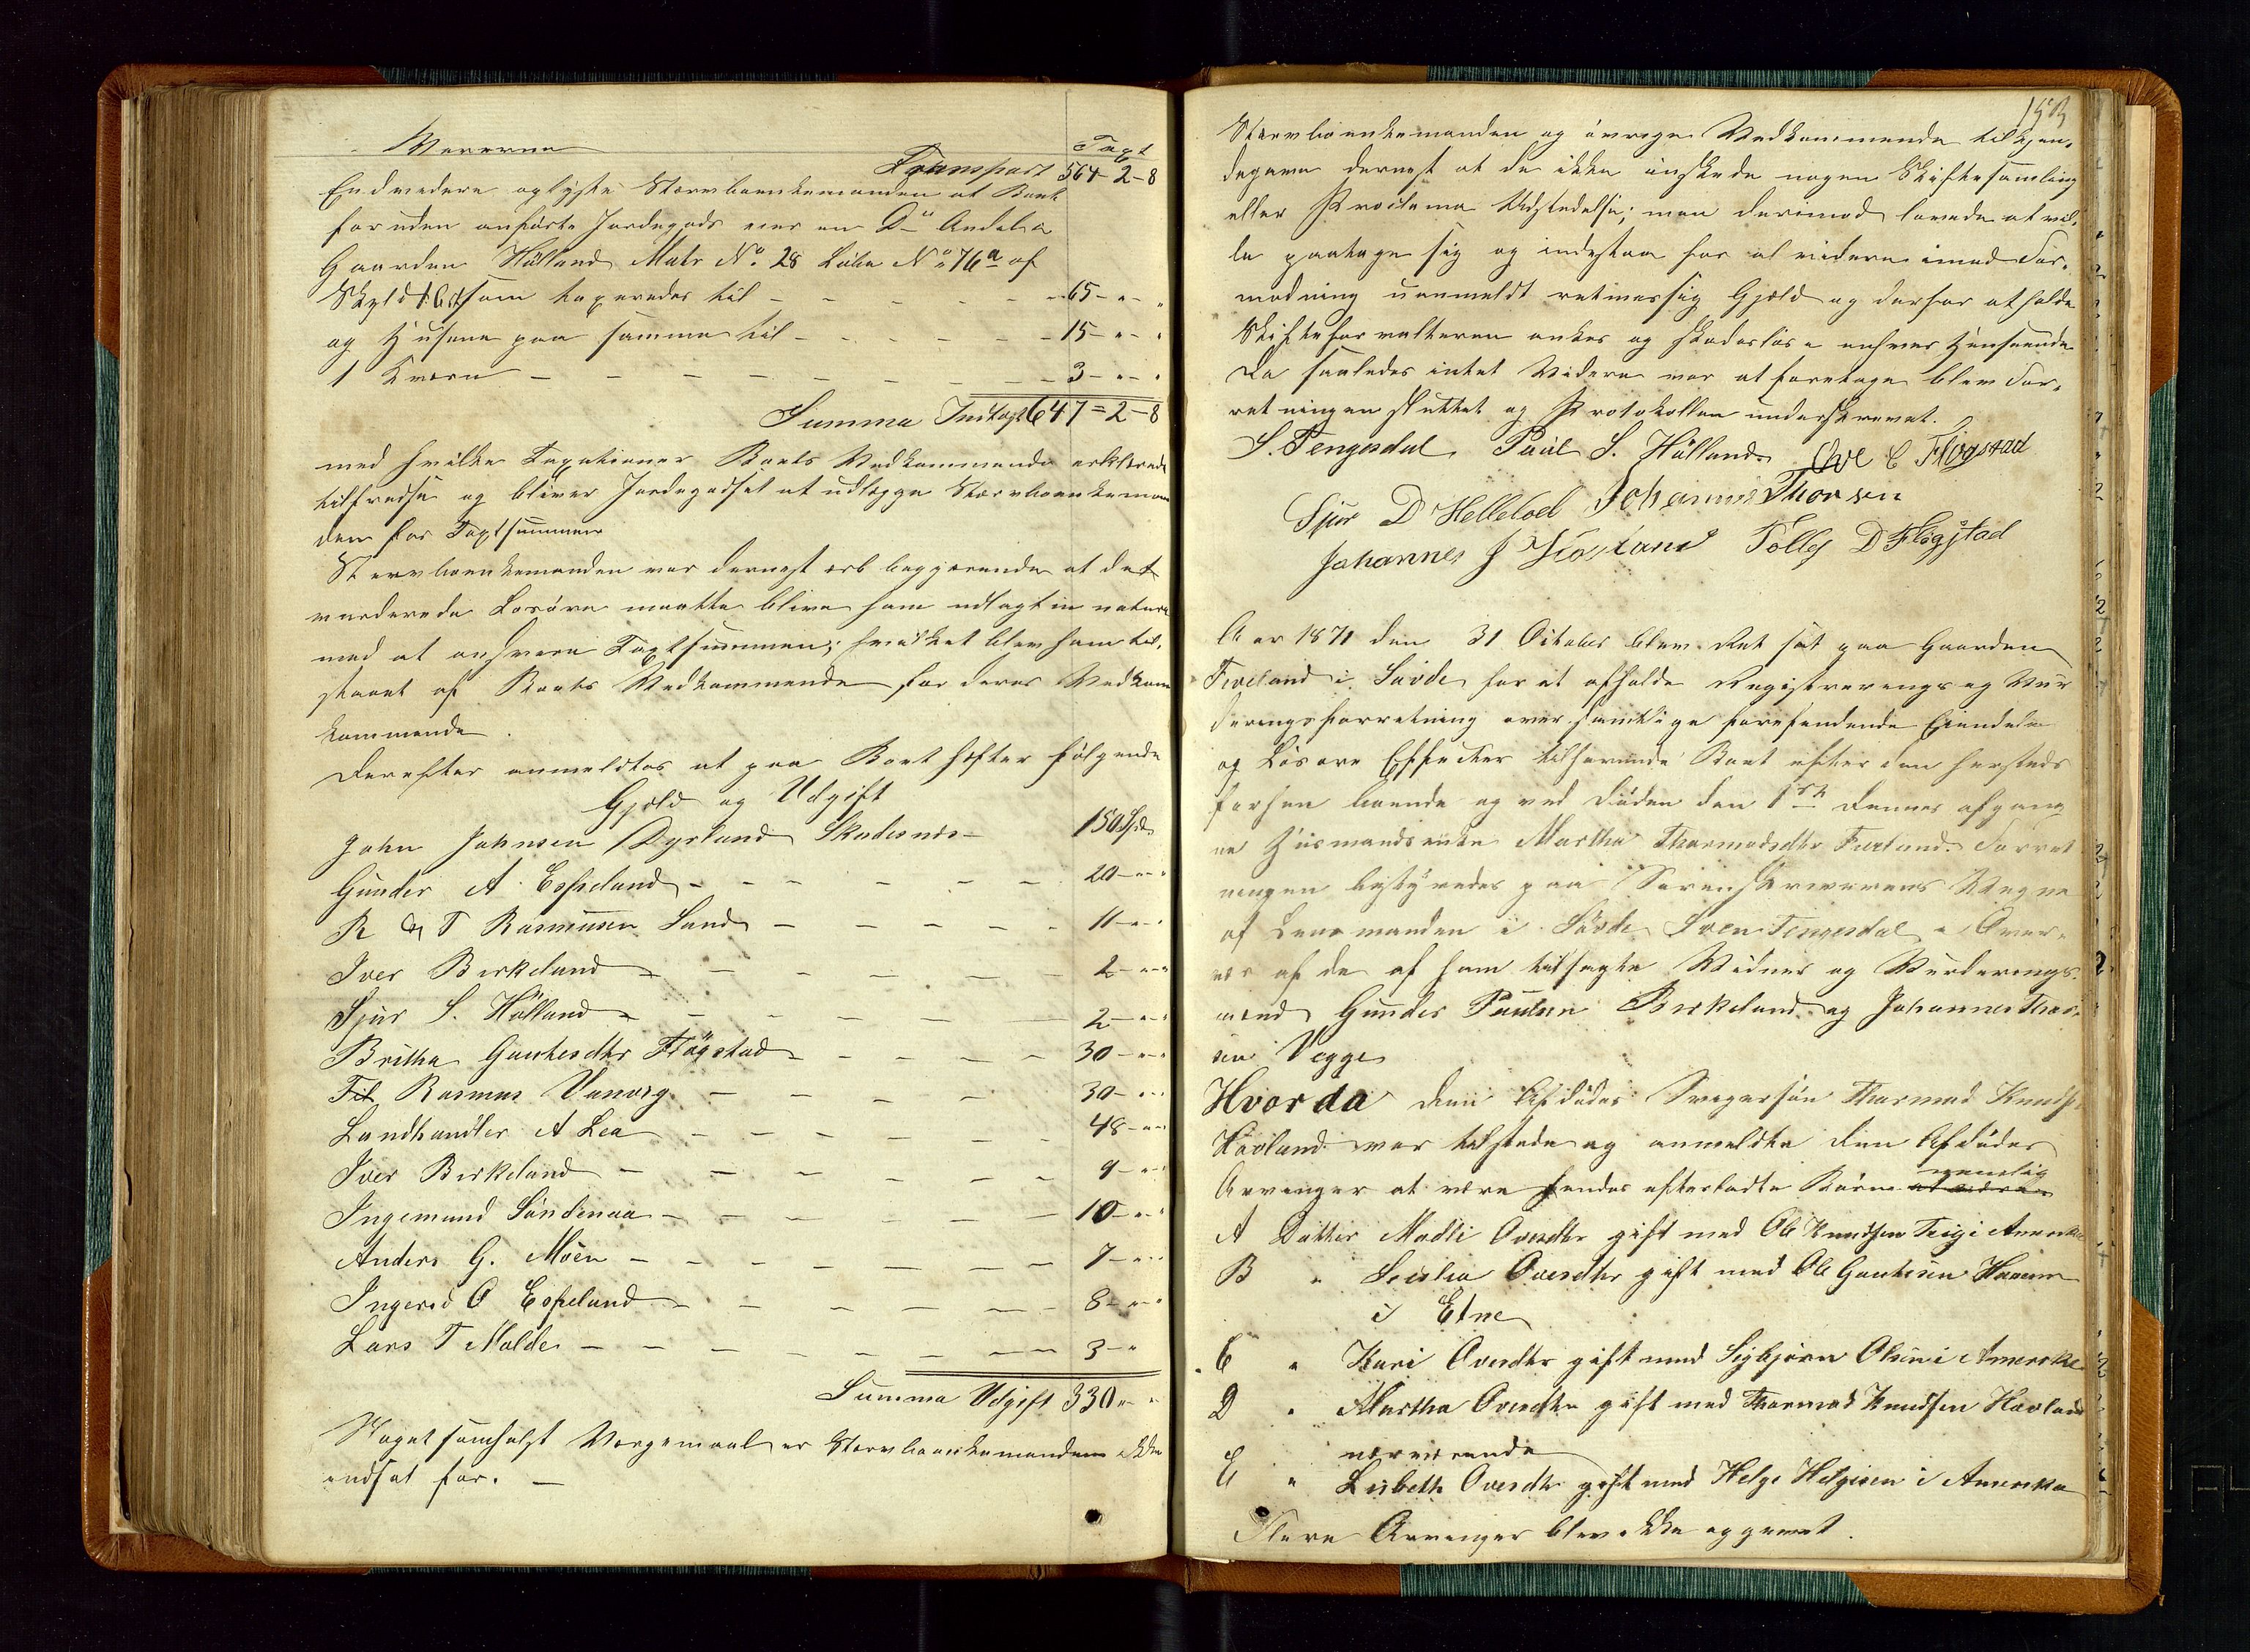 Varerne Taxt
Transport 564-2-8
Endvidere oplyste Stervboenkemanden at Boet
foruden anførte Jordegods eier en Dº Andel i
Gaarden Hölland Matr Nº 28 Løbe Nº 76a af
Skyld som taxeredes til - - - 65 - " - "
og Husene paa samme til - - - 15 - " - "
1 Kværn - - - 3 - " - "
Summa Indtægt 647 = 2 - 8
med hvilke Taxationer Boets Vedkommende erklærede
tilfredse og bliver Jordegodset at udlægge Stervboenkeman
den for Taxtsummen
Stervboenkemanden var dernest begjærende at det
vurderede Løsøre maatte blive ham udlagt in natura
med at ansvare Taxtsummen; hvilket blev ham til-
staaet af Boets Vedkommende for deres Vedkom
kommende.
Derefter anmeldtes at paa Boet hefter følgende
Gjæld og Udgift
John Johnsen Dyrland Skudesnes - 150 Spd
Gunder A. Espeland - - - 20 - " - "
R & T Rasmusen Sand - - - 11 - " - "
Iver Birkeland - - - 2 - " - "
Sjur S. Hölland - - - 2 - " - "
Britha Gauthesdtr Flögstad - - - 30 - " - "
Til Rasmus Vanvig - - - 30 - " - "
Landhandler A Lea - - - 48 - " - "
Iver Birkeland - - - 9 - " - "
Ingemund Söndenaa - - - 10 - " - "
Anders G. Möen - - - 7 - " - "
Ingerid O Espeland - - - 8 - " - "
Lars T Molde - - - 3 - "
Summa Udgift 330 " - "
Noget somhelst Værgemaal er Stervboenkemanden ikke
indsat for. -
153
Stervboenkemanden og øvrige Vedkommende tilkjen-
degave dernest at de ikke ønskede nogen Skiftesamling
eller Proclama Udstedelse; men derimod lovede at vil-
le paatage sig og indestaa for al videre imod For-
modning uanmeldt retmessig Gjæld og derfor at holde
Skifteforvalteren ankes og skadesløs i enhver Henseende
Da saaledes intet Videre var at foretage blev For-
retningen sluttet og Protokollen underskrevet.
S. Tengesdal Paul S. Hölland Ove C Flögstad
Sjur D Helleloed Johannes Thorsen
Johannes J Tolley D Flögstad
Aar 1871 den 31 October blev Ret sat paa Gaarden
Fiveland i Søvde for at afholde Registrerings og Vur
deringsforretning over samtlige forefindende Eiendele
og Løsøre Effecter tilhørende Boet efter den hersteds
forhen boende og ved Døden den 1ste dennes afgang
ne Huusmandsenke Martha Thormodsdtr Fivland. Forret
ningen bestyredes paa Sorenskriverens Vegne
af Lensmanden i Søvde Sven Tengesdal i Over-
vær af de af ham tilsagte Vidner og Vurderings-
mænd Gunder Paulsen Birkeland og Johannes Thor-
sen Vegge
Hvorda den Afdødes Svigersøn Thormod Knuds.
Havland var tilstede og anmeldte den Afdødes
Arvinger at være hendes efterladte Børn nemlig
A Datter Madli Ovesdtr gift med Ole Knudsen Teig i Amerika
B " Ovesdtr gift med Ole Gauthesen
i Etne
C " Kari Ovesdtr gift med Sigbjørn Olsen i Amerika
D " Martha Ovesdtr gift med Thormod Knudsen Havland
nærværende
E " Lisbeth Ovesdtr gift med Helge Helgesen i Amerika
Flere Arvinger blev ikke opgivet.